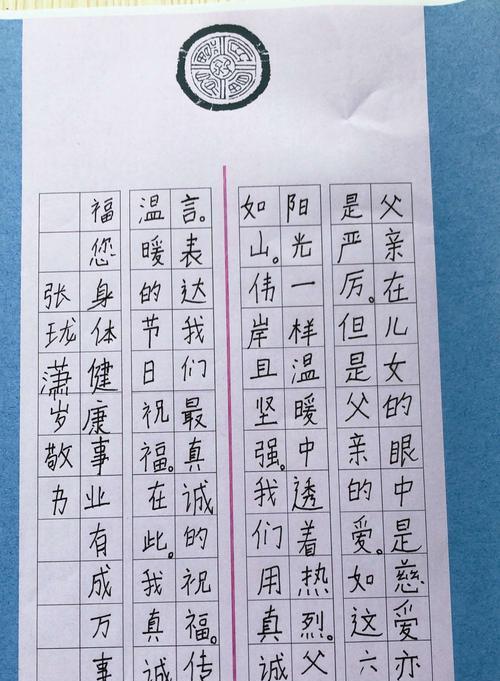 父亲在儿女的眼中是慈爱亦
是严厉。但是父亲的爱。如这六
阳光一样温暖中透着热烈。父
如山。伟岸且坚强。我们用真诚
言。表达我们最真诚的祝福。传
温暖的节日祝福。在此。我真诚
福您身体健康事业有成万事
张珑潇岁敬